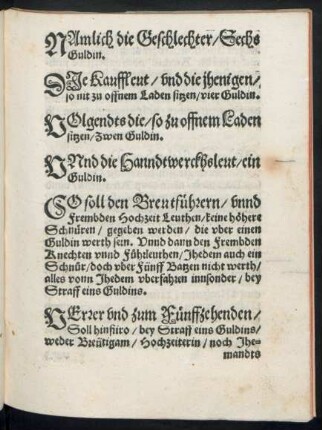 NAmlich die Geschlechter / Sechs
Guldin.
DJe Kauffleut / vnd die jhenigen /
so nit zu offnem Laden sitzen / vier Guldin.
VOlgendts die / so zu offnem Laden
sitzen / Zwen Guldin.
VNnd die Hanndtwerckhsleut / ein
Guldin.
SO soll den Breutführern / vnnd
Frembden Hochzeit Leuthen / keine höhere
Schnüren / gegeben werden / die vber einen
Guldin werth sein. Vnnd dann den Frembden
Knechten vnnd Führleuthen / Jhedem auch ein
Schnür / doch vber Fünff Batzen nicht werth /
alles vonn Jhedem vberfahren innsonder / bey
Straff eins Guldins.
VErrer vnd zum Fünffzehenden /
Soll hinfüro / bey Straff eins Guldins /
weder Breütigam / Hochzeiterin / noch Jhe-
mandts